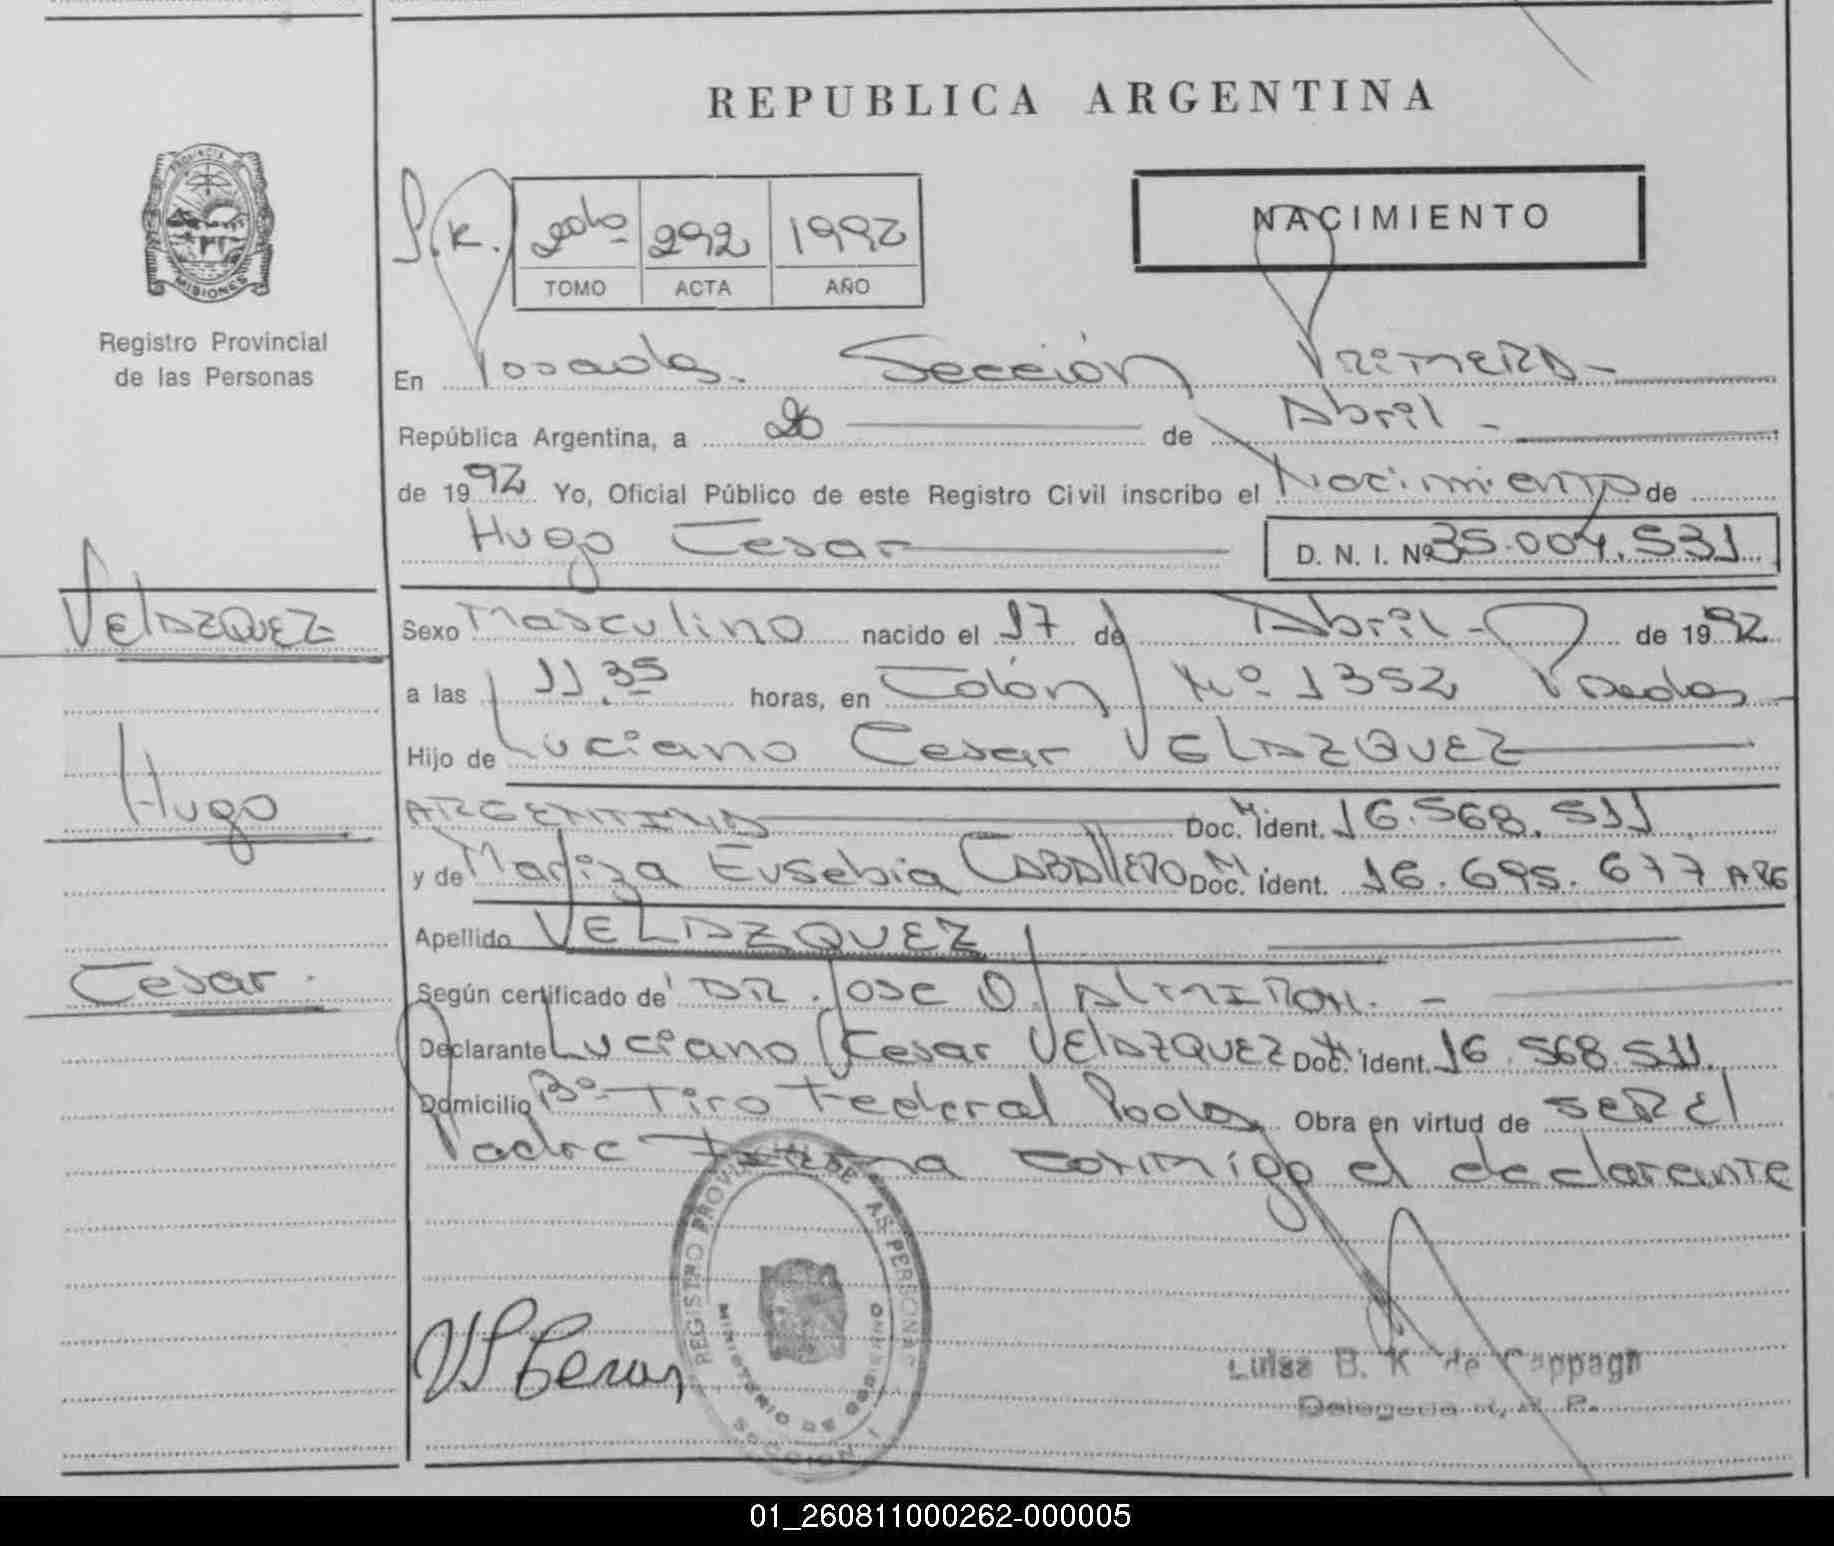 REPUBLICA ARGENTINA
PROVINCIA DE
MISIONES
Registro Provincial
de las Personas
S.R.
2do 292 1992
TOMO ACTA AÑO
NACIMIENTO
En Posadas. Sección Primera -
República Argentina, a 20 de Abril -
de 1992 Yo, Oficial Público de este Registro Civil inscribo el Nacimiento de
Hugo Cesar D. N. I. Nº 35.004.531
VELAZQUEZ
Hugo
Cesar.
Sexo Masculino nacido el 17 de Abril - de 1992
a las 11.35 horas, en Colón Nº 1352 Posadas
Hijo de Luciano Cesar VELAZQUEZ
ARGENTINO Doc. Ident. M. 16.568.511
y de Mariza Eusebia CABALLERO Doc. Ident. M. 16.695.677 ARG
Apellido VELAZQUEZ
Según certificado de DR. Jose O. ALMIRON. -
Declarante Luciano Cesar VELAZQUEZ Doc. Ident. 16.568.511.
Domicilio Bº Tiro Federal Pdas Obra en virtud de SER El
Padre Firma conmigo el declarante
REGISTRO PROVINCIAL DE LAS PERSONAS
MINISTERIO DE GOBIERNO
SECCION 1
Luisa B. K de Cappagli
Delegada R. P.
01_260811000262-000005